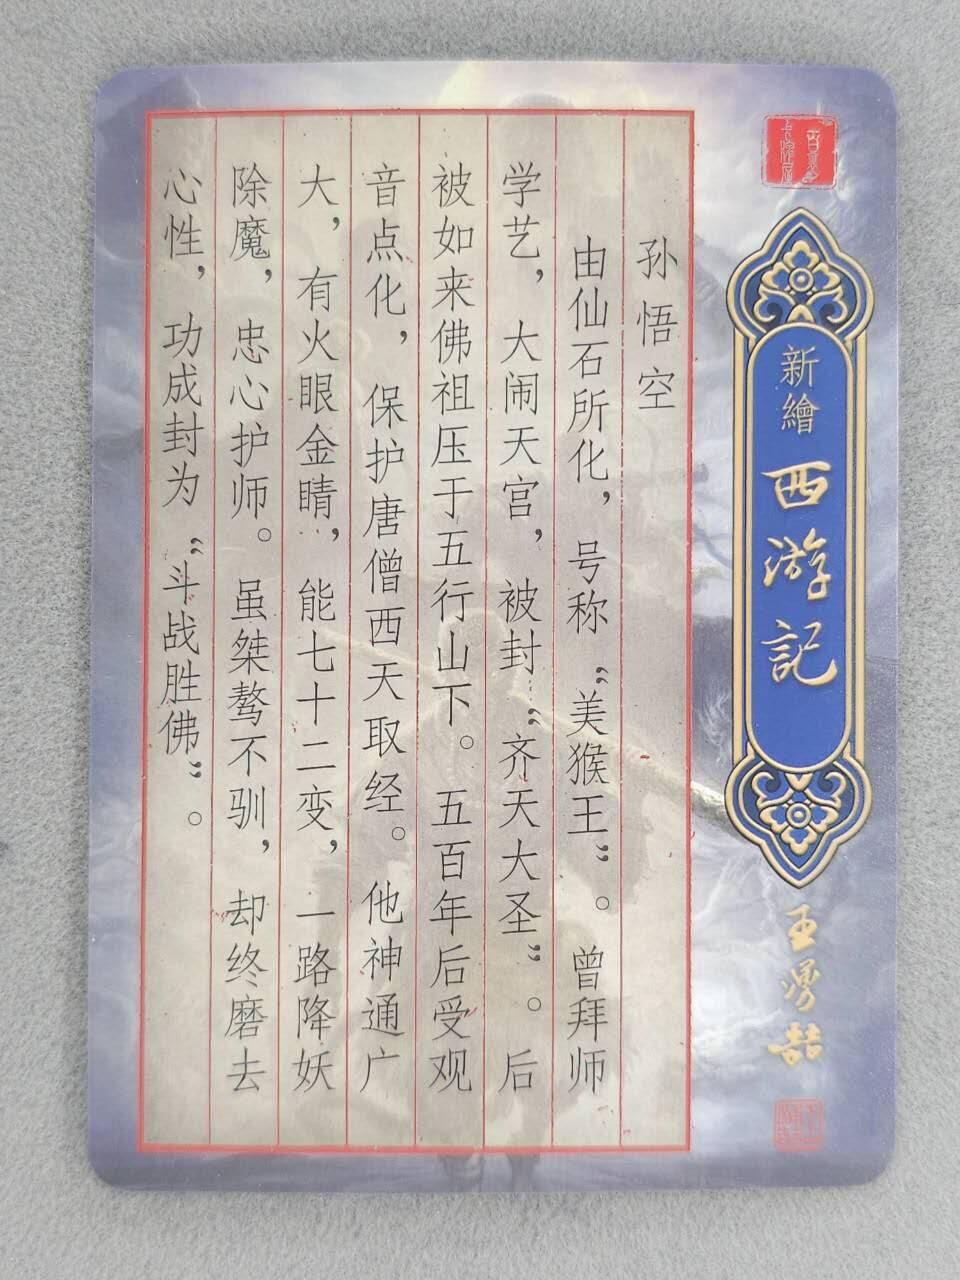 新繪
西游記
王勇喆
孙悟空
由仙石所化，号称“美猴王”。曾拜师
学艺，大闹天宫，被封“齐天大圣”。后
被如来佛祖压于五行山下。五百年后受观
音点化，保护唐僧西天取经。他神通广
大，有火眼金睛，能七十二变，一路降妖
除魔，忠心护师。虽桀骜不驯，却终磨去
心性，功成封为“斗战胜佛”。